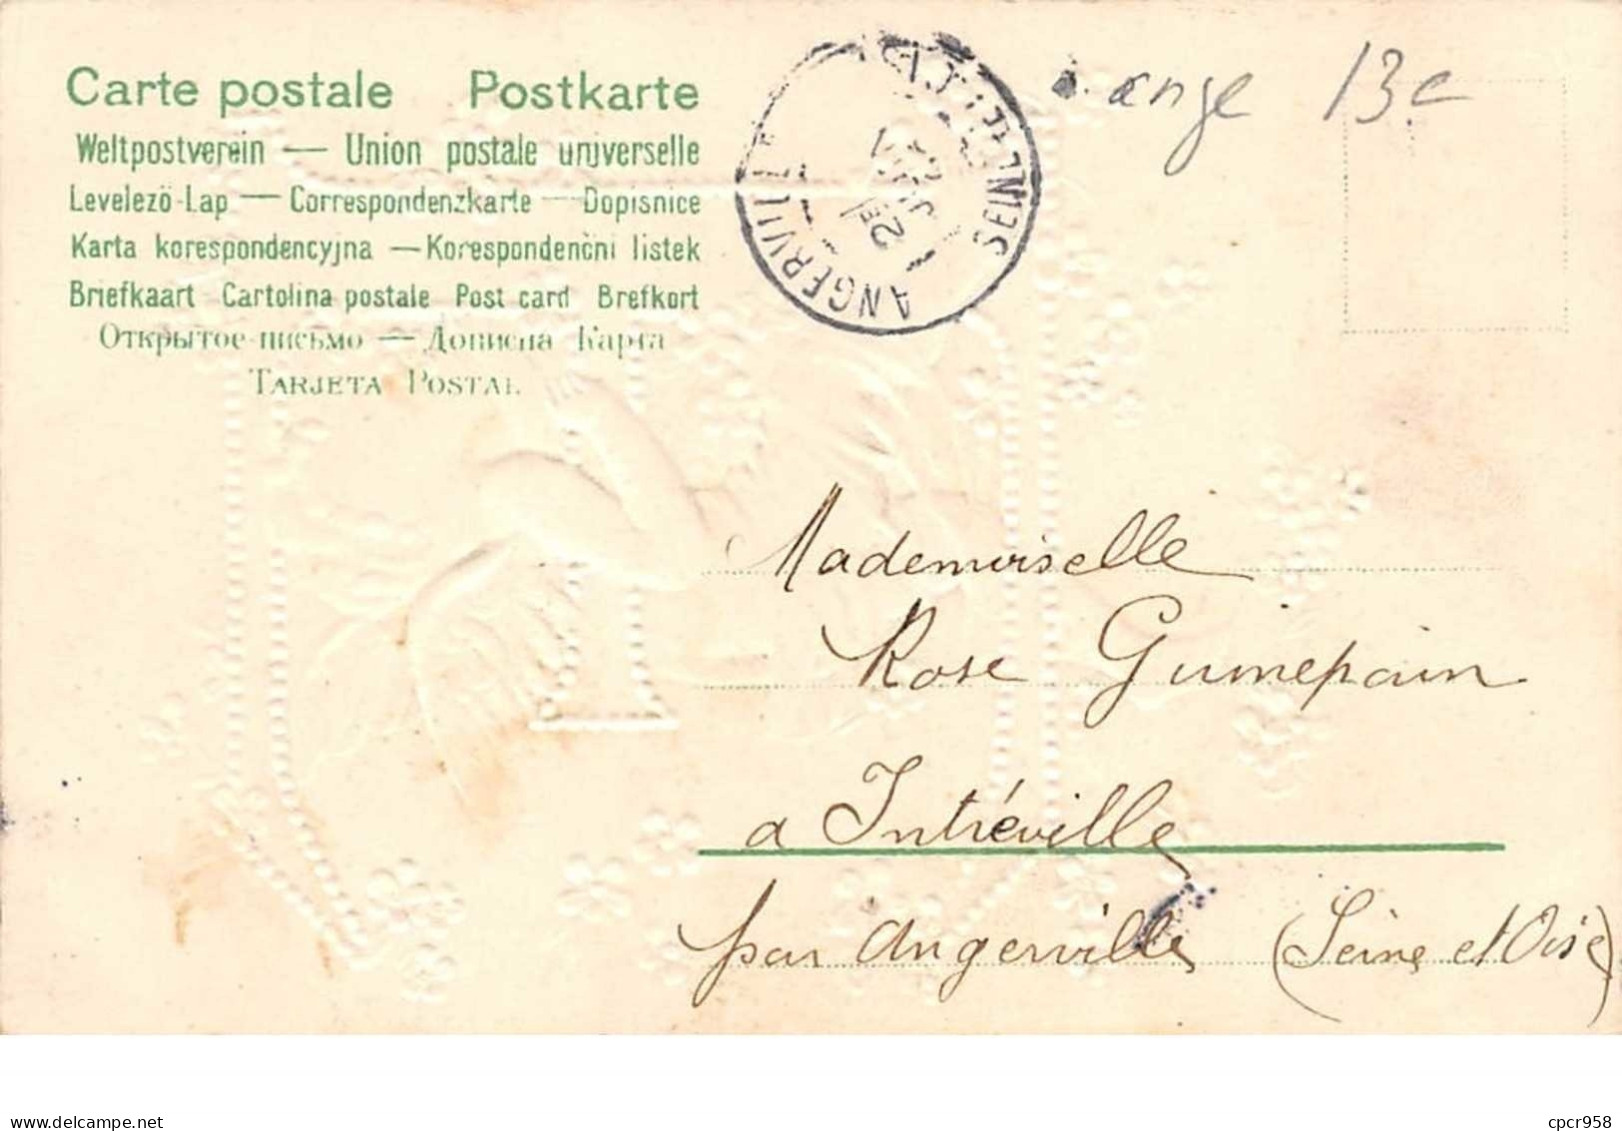 Carte postale Postkarte
Weltpostverein — Union postale universelle
Levelezö-Lap — Correspondenzkarte — Dopisnice
Karta korespondencyjna — Korespondenčni listek
Briefkaart Cartolina postale Post card Brefkort
Открытое письмо — Дописна Карта
TARJETA POSTAL
ange 13e
ANGERVILLE
SEINE
Mademoiselle
Rose Guinepain
a Intréville
par Angerville (Seine et Oise)
cpcr958